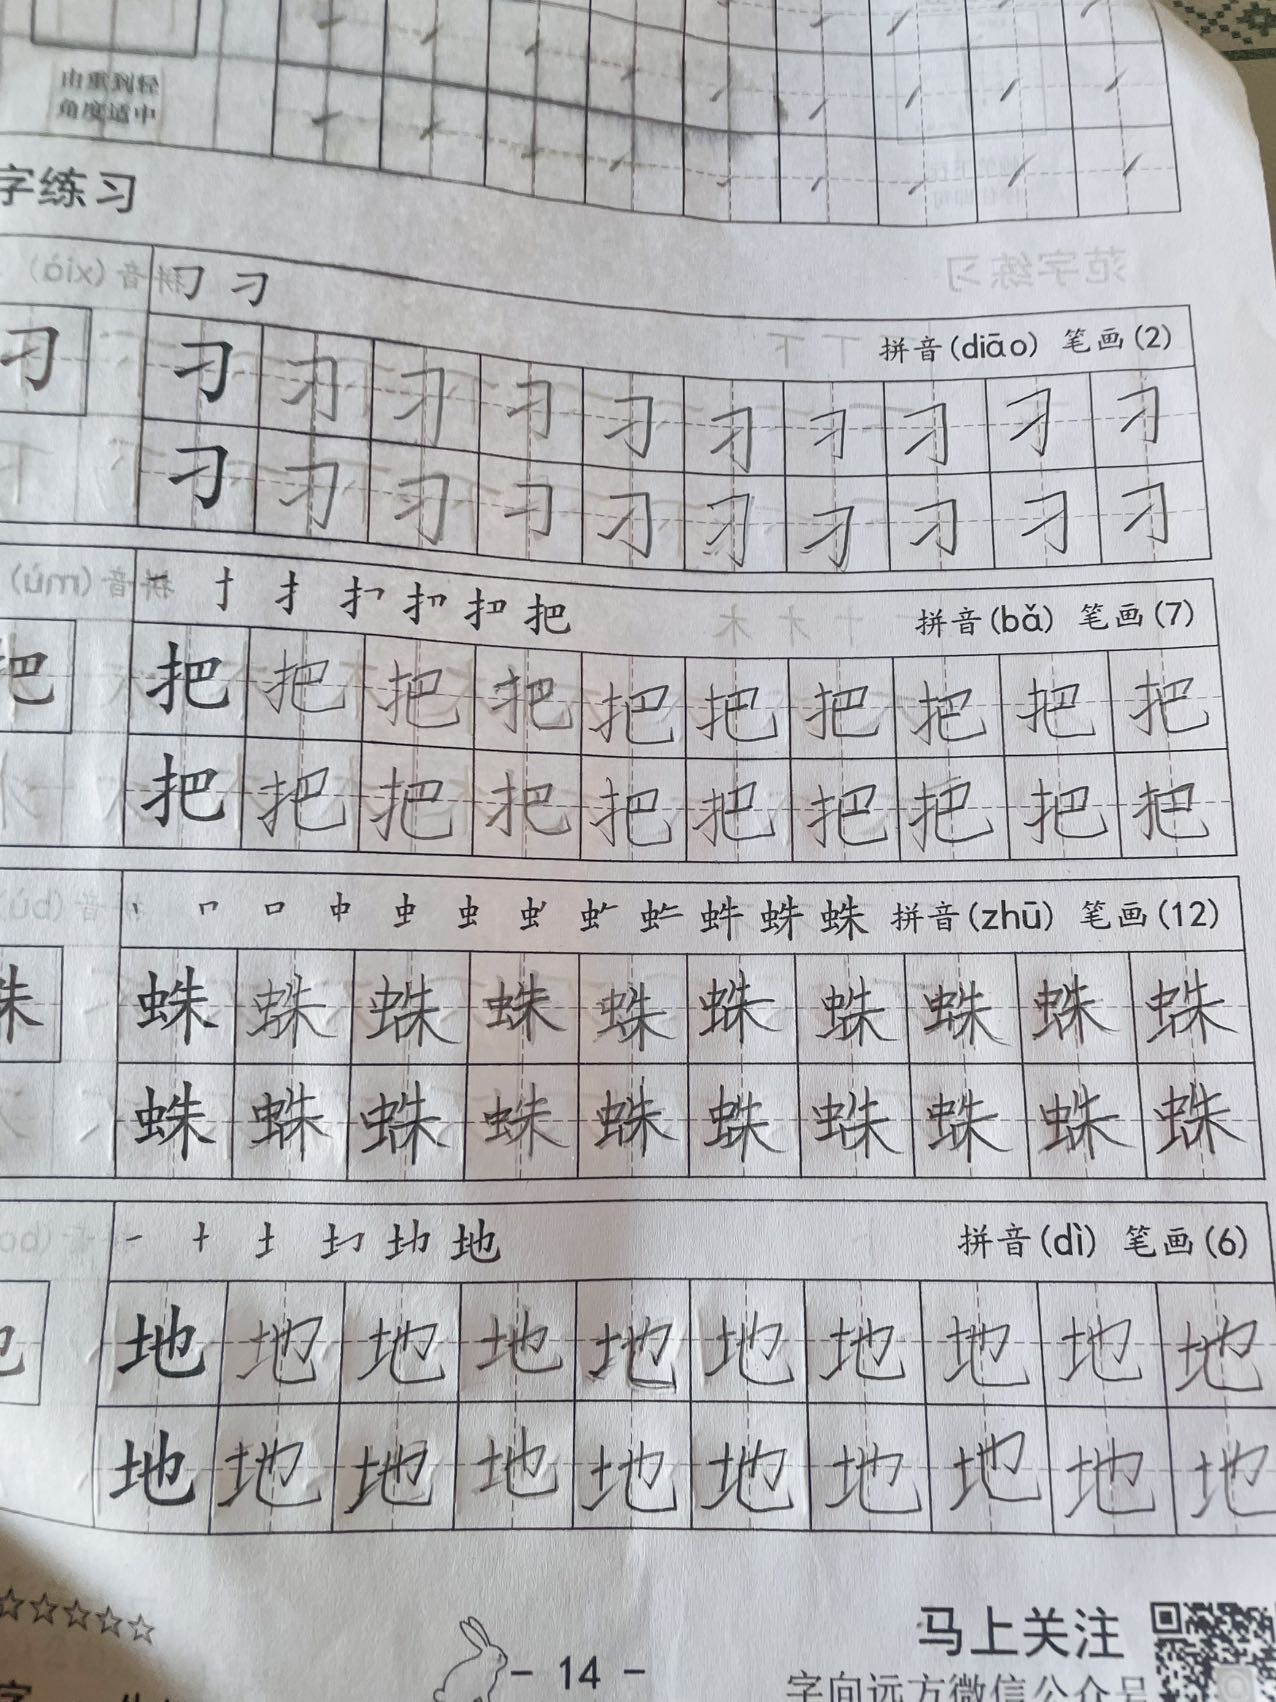 由重到轻
角度适中
字练习
𠃌 刁
拼音(diāo) 笔画(2)
刁 刁 刁 刁 刁 刁 刁 刁 刁 刁 刁
刁 刁 刁 刁 刁 刁 刁 刁 刁 刁
一 十 扌 把
拼音(bǎ) 笔画(7)
把 把 把 把 把 把 把 把 把 把 把
把 把 把 把 把 把 把 把 把 把
口 中 虫 虫 蛛 蛛 拼音(zhū) 笔画(12)
蛛 蛛 蛛 蛛 蛛 蛛 蛛 蛛 蛛 蛛
蛛 蛛 蛛 蛛 蛛 蛛 蛛 蛛 蛛 蛛
一 十 土 地 拼音(dì) 笔画(6)
地 地 地 地 地 地 地 地 地 地
地 地 地 地 地 地 地 地 地 地
☆☆☆☆☆
马上关注
- 14 -
字向远方微信公众号